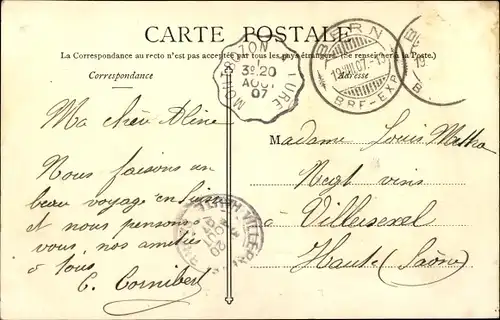 CARTE POSTALE
La Correspondance au recto n'est pas acceptée par tous les pays étrangers (Se renseigner à la Poste.)
Correspondance
Adresse
MORT ZON LURE
3e 20
AOUT
07
BERN
19.VIII.07.
BRF-EXP.
Ma chère Aline
Nous faisons un
beau voyage en Suisse
et nous pensons
vous, nos amitiés
à tous
C. Cornibert
Madame Louis
Negt vins
à Villersexel
Haute (Saône)